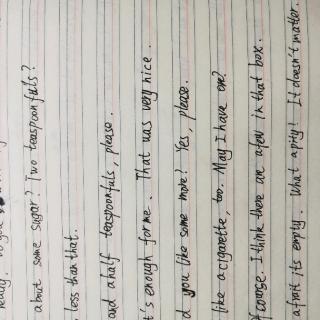 ready. Do you
about some sugar? Two teaspoonfuls?
less than that.
and a half teaspoonfuls, please.
t's enough for me. That was very nice.
d you like some more? Yes, please.
like a cigarette, too. May I have one?
f course. I think there are a few in that box.
afrait its empty. What apty! It doesn't matter.